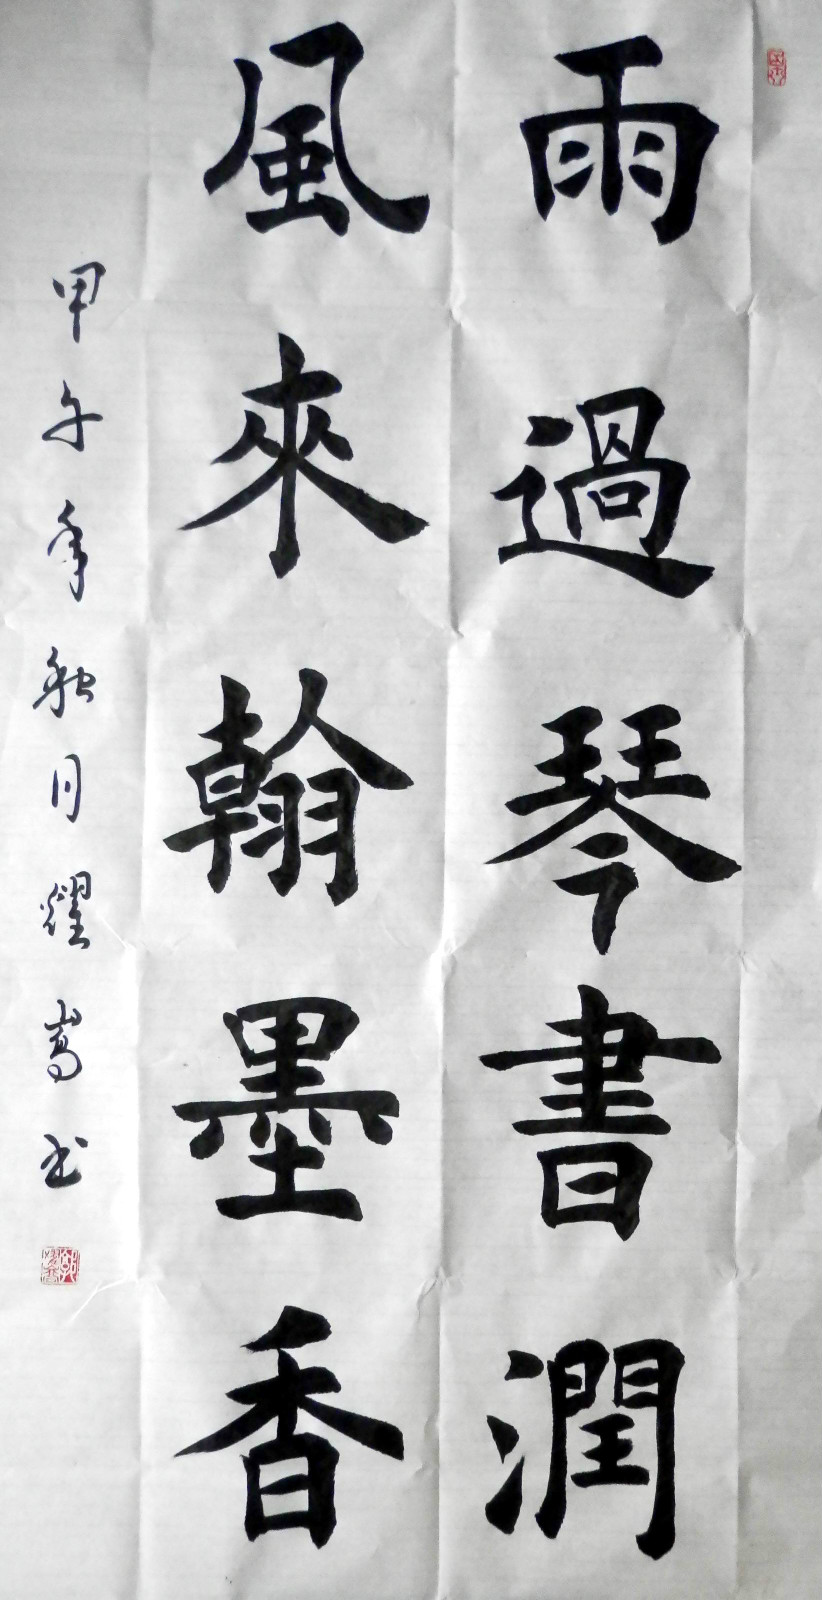 雨過琴書潤
風來翰墨香
甲午年秋月耀嵩书